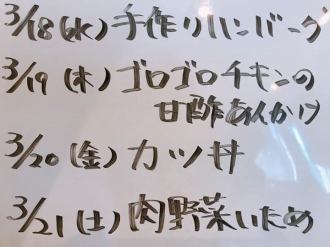 3/18(水)手作りハンバーグ
3/19(木)ゴロゴロチキンの
甘酢あんかけ
3/20(金)カツ丼
3/21(土)肉野菜いため